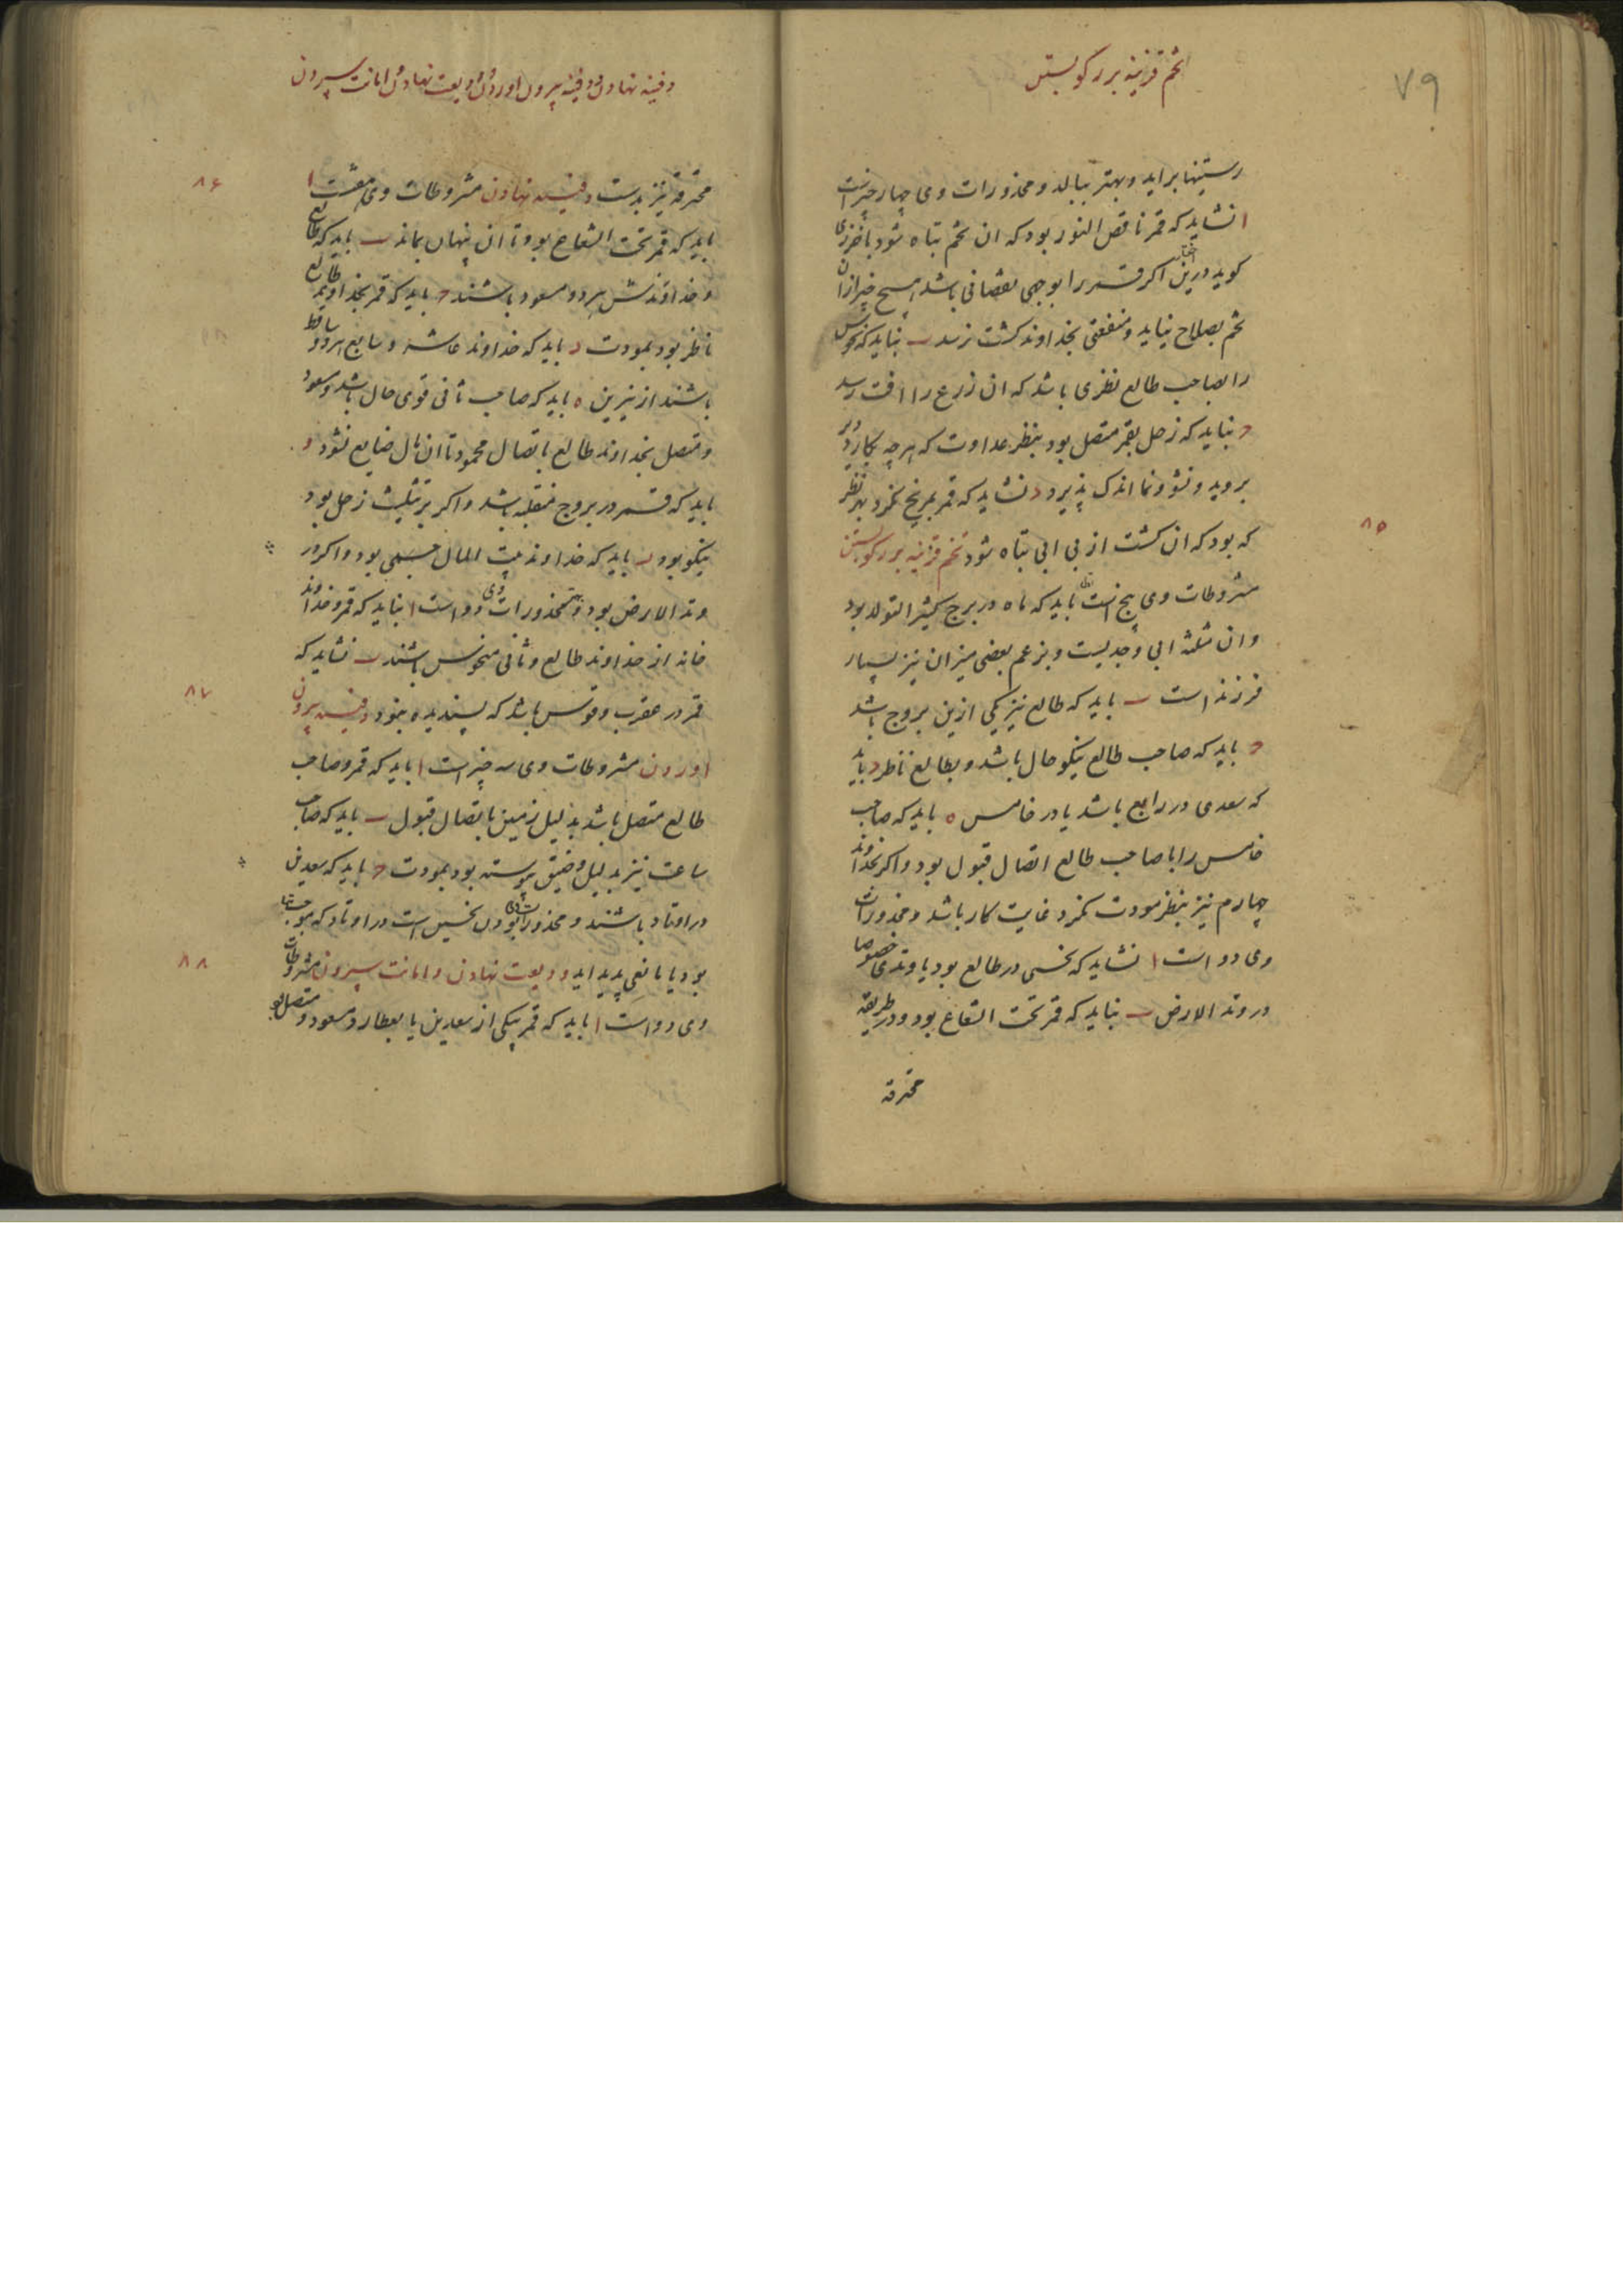 ۷۹
تخم قزنیه بر رکو بستن
رستنیها براید و بهتر ببالد و محذورات وی چهار چیزست
ا نشاید که قمر ناقص النور بود که ان تخم تباه شود باخرزی
کوید درین اختیار اکر قمر را بوجهی نقصانی باشد هیچ چیز ازان
تخم بصلاح نیاید و منفعتی بخداوند کشت نرسد ب نباید که نحوس
را بصاحب طالع نظری باشد که ان زرع را افت رسد
ج نباید که زحل بقمر متصل بود بنظر عداوت که هرچه بکارند دیر
بروید و نشو و نما اندک پذیرد د نشاید که قمر بمریخ نکرد بهر نظر
۸۵
که بود که ان کشت از بی ابی تباه شود تخم قزنیه بر رکو بستن
مشروطات وی پنج است ا باید که ماه در برج کثیر التولد بود
و ان مثلثه ابی و جدیست و بزعم بعضی میزان نیز بسیار
فرزند است ب باید که طالع نیز یکی ازین بروج باشد
ج باید که صاحب طالع نیکو حال باشد و بطالع ناظر د باید
که سعدی در رابع باشد یا در خامس ه باید که صاحب
خامس را با صاحب طالع اتصال قبول بود و اکر بخداوند
چهارم نیز بنظر مودت نکرد غایت کار باشد و محذورات
وی دو است ا نشاید که نحسی در طالع بود یا وتدی خصوصا
در وتد الارض ب نباید که قمر تحت الشعاع بود و در طریقه
محترقه
دفینه نهادن و دفینه بیرون اوردن و ودیعت نهادن و امانت سپردن
۸۶
محترقه نیز بدست دفینه نهادن مشروطات وی هفتست ا
باید که قمر تحت الشعاع بود تا ان پنهان بماند ب باید که طالع
و خداوندش هر دو مسعود باشند ج باید که قمر بخداوند طالع
ناظر بود بمودت د باید که خداوند عاشر و سابع هر دو ساقط
باشند از نیرین ه باید که صاحب ثانی قوی حال باشد و مسعود
و متصل بخداوند طالع باتصال محمود تا ان مال ضایع نشود و
باید که قمر در بروج منقلبه باشد و اکر بر تثلیث زحل بود
نیکو بود ز باید که خداوند بیت المال جسیمی بود و اکر در
وتد الارض بود بهتر و محذورات وی دو است ا نباید که قمر و خداوند
خانه از خداوند طالع و ثانی منحوس باشند ب نشاید که
۸۷
قمر در عقرب و قوس باشد که پسندیده نبود دفینه بیرون
اوردن مشروطات وی سه چیز است ا باید که قمر و صاحب
طالع متصل باشد بدلیل زمین باتصال قبول ب باید که صاحب
ساعت نیز بدلیل وضیق پیوسته بود بمودت ج باید که سعدین
در اوتاد باشند و محذورات وی بودن نحسین است در اوتاد که موجب خفا
۸۸
بود یا مانعی پدید اید ودیعت نهادن و امانت سپردن مشروطات
وی دو است ا باید که قمر بیکی از سعدین یا بعطارد مسعود متصل بود